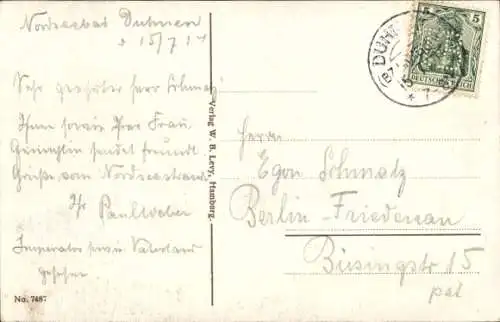 Nordseebad Duhnen
15/7 14
Sehr geehrter Herr Schmatz
Ihnen sowie Ihrer Frau
Gemahlin sendet freundl
Grüße vom Nordseestrand
Ihr Paul Weber
Imperator sowie Vaterland
gesehen
No. 7487
Verlag W. B. Levy, Hamburg.
DUHN
5 5
DEUTSCHES REICH
Herrn
Egon Schmatz
Berlin-Friedenau
Büsingstr 15
pat